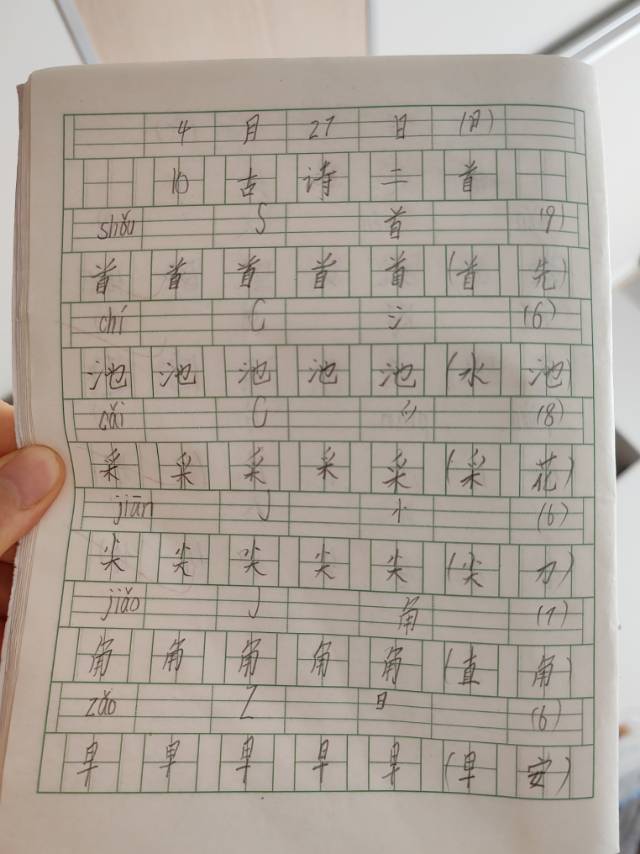 4 月 27 日 (月)
10 古 诗 二 首
shǒu S 首 (9)
首 首 首 首 首 (首 先)
chí C 氵 (6)
池 池 池 池 池 (水 池)
cǎi C 爫 (8)
采 采 采 采 采 (采 花)
jiān J 小 (6)
尖 尖 尖 尖 尖 (尖 刀)
jiǎo J 角 (7)
角 角 角 角 角 (直 角)
zǎo Z 日 (6)
早 早 早 早 早 (早 安)